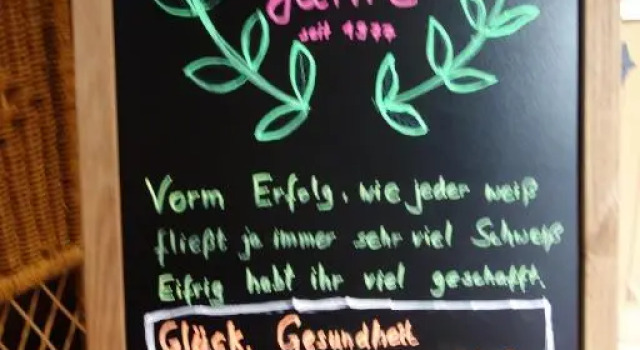 Jahre
seit 1977
Vorm Erfolg, wie jeder weiß
fließt ja immer sehr viel Schweiß
Eifrig habt ihr viel geschafft.
Glück, Gesundheit